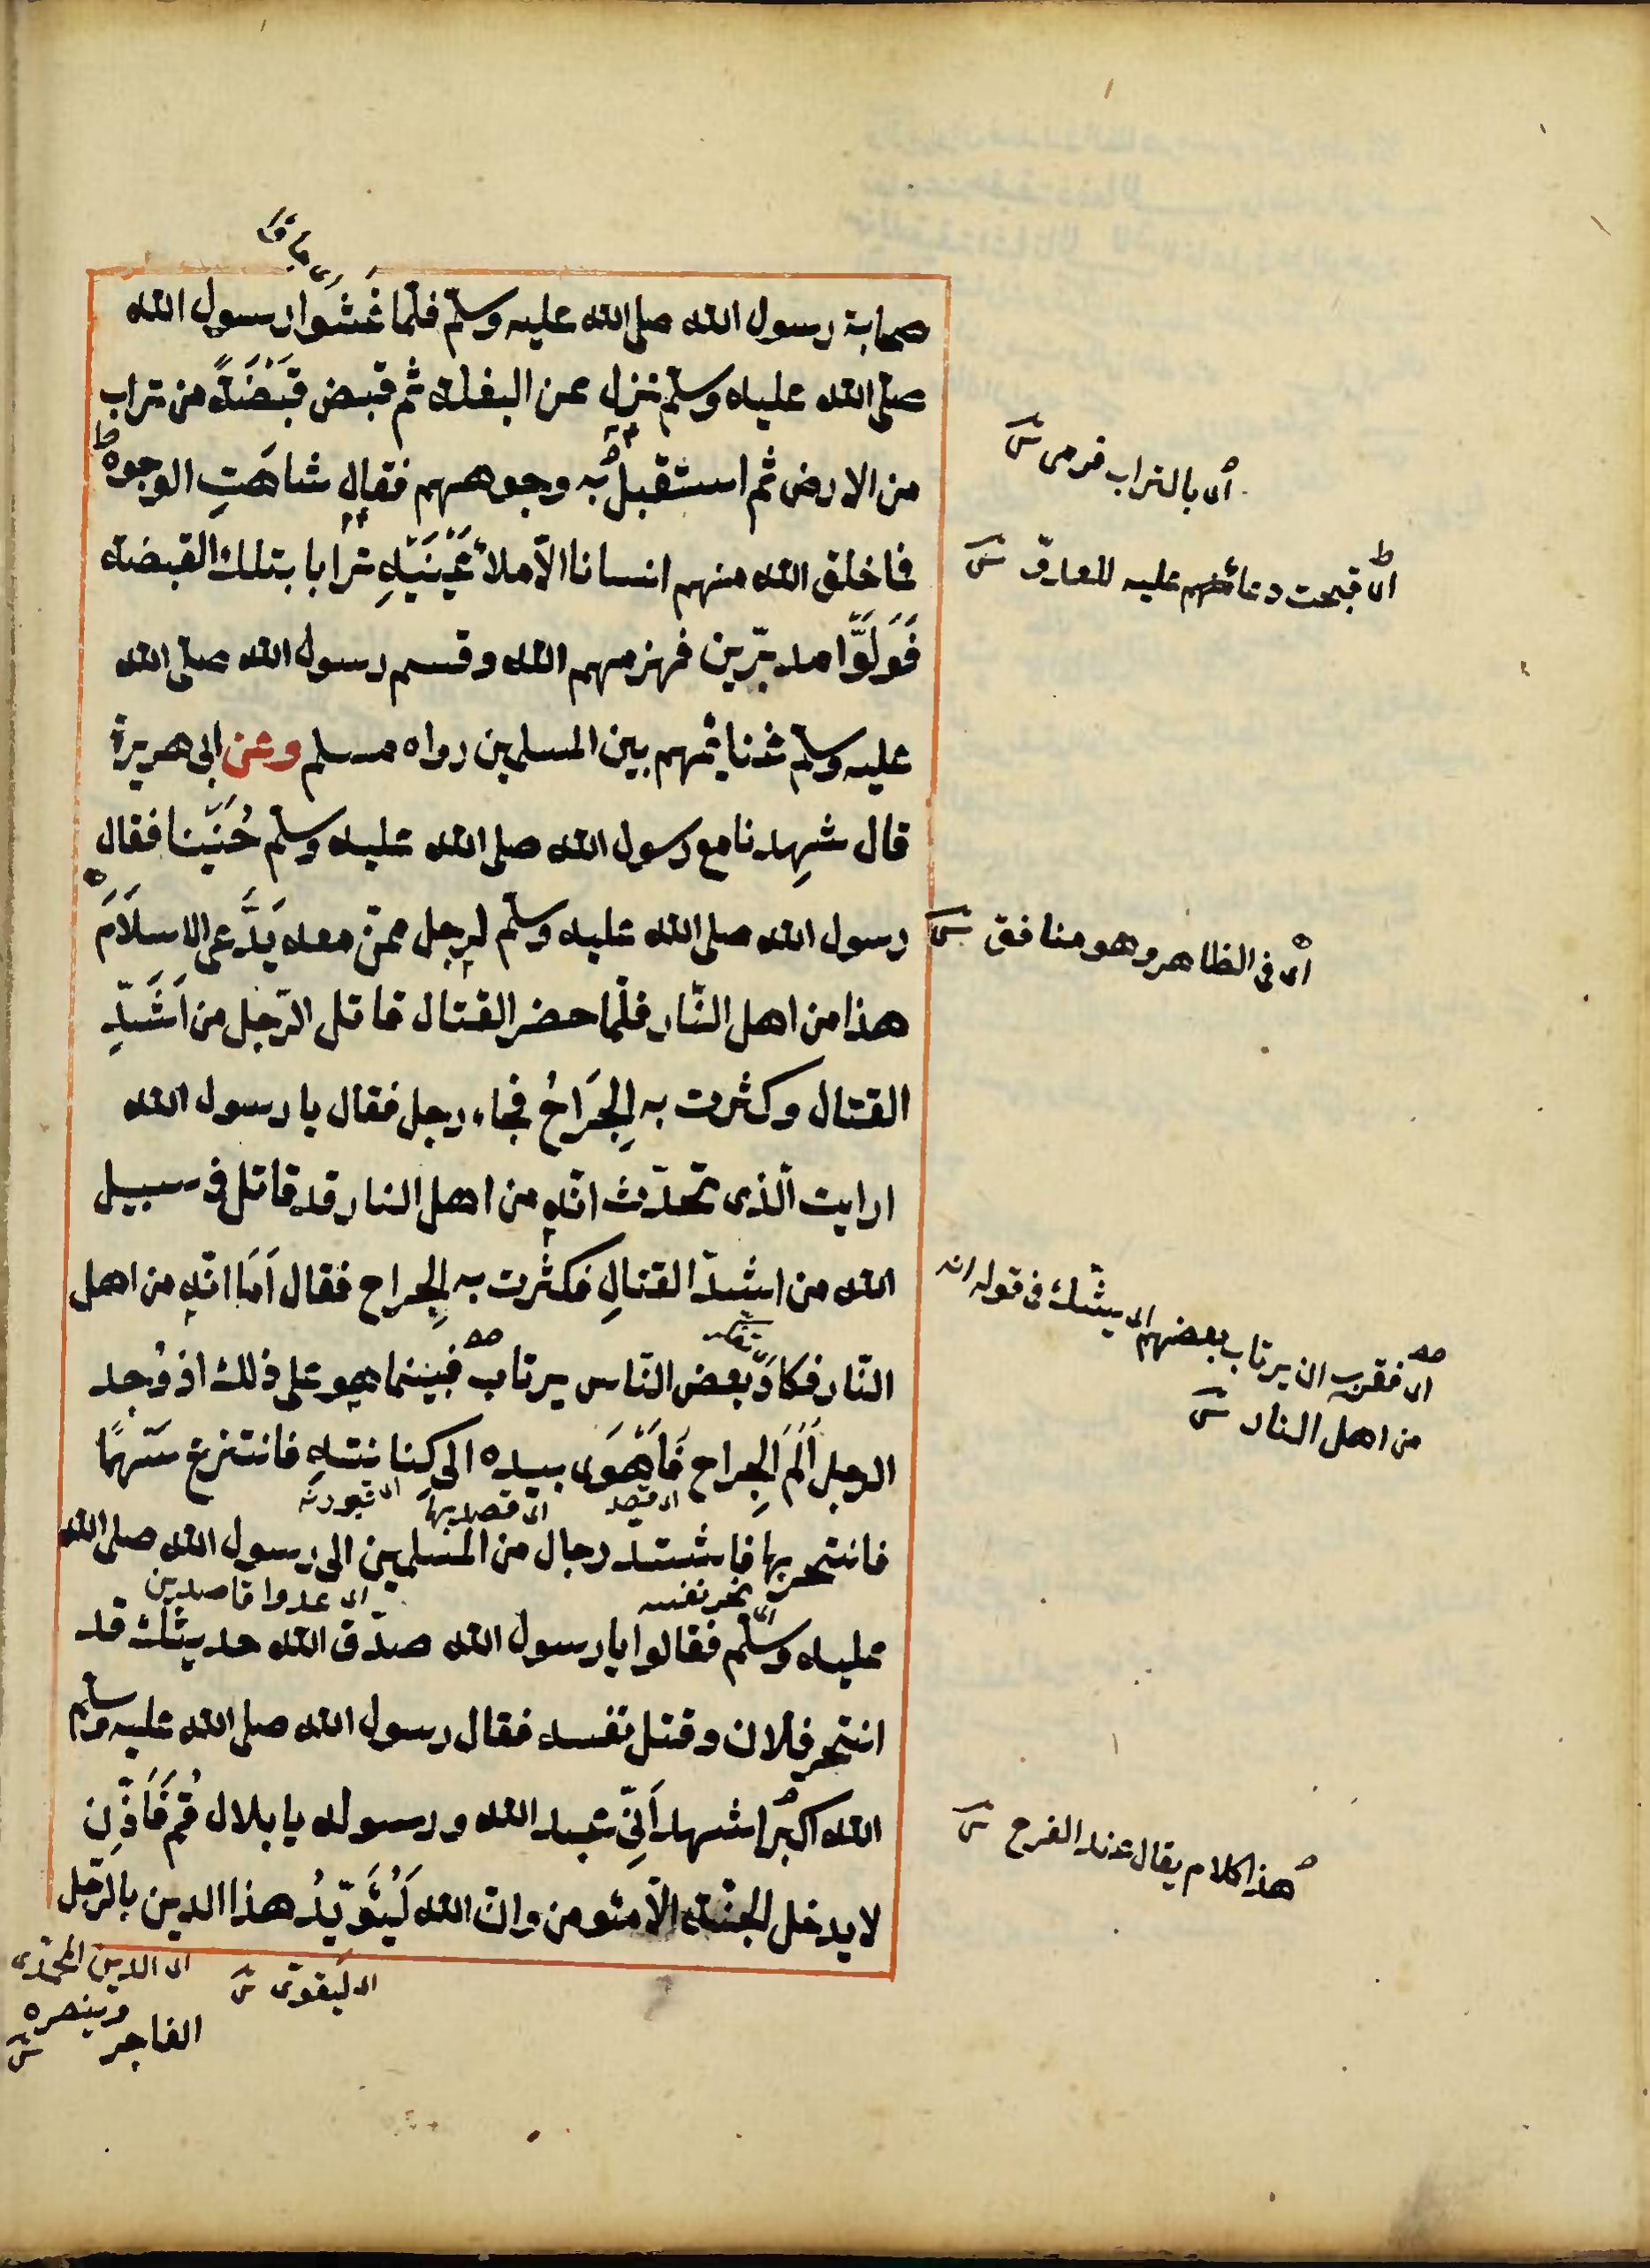 صحابة رسول الله صلى الله عليه وسلم فلمّا غَشَوا رسول الله
صلى الله عليه وسلم نزل عن البغلة ثم قبض قَبْضَةً من تراب
من الارض ثم استقبل به وجوههم فقال شاهَتِ الوجوه
فما خلق الله منهم انسانا الّا ملأ عَيْنَيْهِ ترابا بتلك القبضة
فَوَلَّوْا مدبّرين فهزمهم الله وقسم رسول الله صلى الله
عليه وسلم غنايمهم بين المسلمين رواه مسلم وعن ابى هريرة
قال شهِدنا مع رسول الله صلى الله عليه وسلم حُنَيْنا فقال
رسول الله صلى الله عليه وسلم لرجل ممّن معه يَدَّعى الاسلَامَ
هذا من اهل النّار فلمّا حضر القتال قاتل الرّجل من اَشَدِّ
القتال وكثرت به الجِرَاحُ فجاء رجل فقال يا رسول الله
ارايت الّذى تحدّث انّه من اهل النار قد قاتل فى سبيل
الله من اشدّ القتالِ فكثرت به الجِراح فقال اَمَا انّه من اهل
النّار فكادَ بعض النّاس يرتاب فبينما هو على ذلك اذ وُجد
الرجل اَلَمَ الجِراح فَاَهْوَى بيده الى كنانتهِ فانتزع سَهْمًا
اى قصد
فانتحر بها فاشتد رجال من المسلمين الى رسول الله صلى الله
اى نحر نفسه
اى عدوا قاصدين
عليه وسلّم فقالوا يا رسول الله صدّق الله حديثك قد
انتحر فلان وقتل نفسه فقال رسول الله صلى الله عليه وسلم
الله اكبر اشهد اَنّى عبد الله ورسوله يا بلال قُمْ فَاَذِّن
لا يدخل الجنّة الّا مئومن وانّ الله لَيُئَوَيّدُ هذا الدين بالرّجل
الفاجر
اى ليقوّى ش
اى الدين المحمّدى
وينصره
ش
اى بالتراب فرمى ش
اى قبحت دعا منهم عليه للعارف ش
اى فى الظاهر وهو منافق ش
اى فقرب ان يرتاب بعضهم اى يشك فى قوله انه
من اهل النار ش
هذا كلام يقال عند الفرح ش